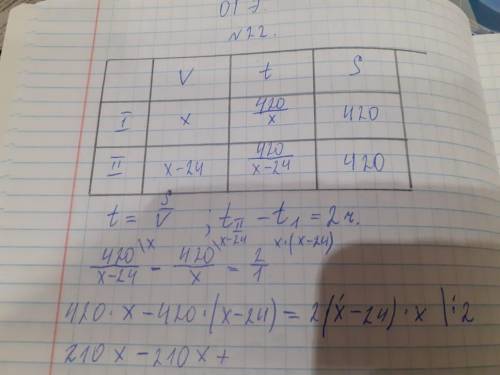 №22.
V t S
I x 420/x 420
II x-24 420/(x-24) 420
t = S/V ; t_II - t_1 = 2ч.
420/(x-24) \x - 420/x \x-24 = 2/1 x·(x-24)
420·x - 420·(x-24) = 2(x-24)·x |:2
210x - 210x +